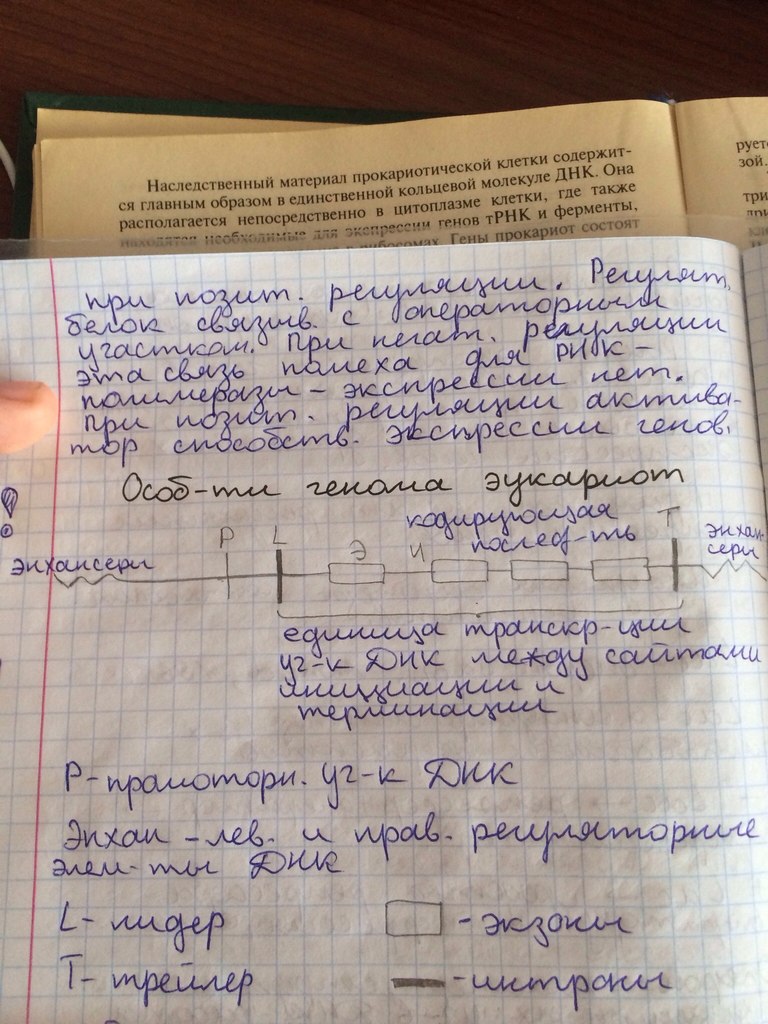 Наследственный материал прокариотической клетки содержит-
ся главным образом в единственной кольцевой молекуле ДНК. Она
располагается непосредственно в цитоплазме клетки, где также
находятся необходимые для экспрессии генов тРНК и ферменты,
рибосомах. Гены прокариот состоят
зой.
три
при позит. регуляции. Регулят.
белок связыв. с операторным
участком. При негат. регуляции
эта связь помеха для РНК-
полимеразы - экспрессии нет.
При позит. регуляции актива-
тор способств. экспрессии генов.
Особ-ти генома эукариот
кодирующая
послед-ть
P L Э И T
энхансеры
энхан-
серы
единица транскр-ции
уч-к ДНК между сайтами
инициации и
терминации
P-промоторн. уч-к ДНК
Энхан - лев. и прав. регуляторные
элем-ты ДНК
L- лидер - экзоны
T- трейлер - интроны